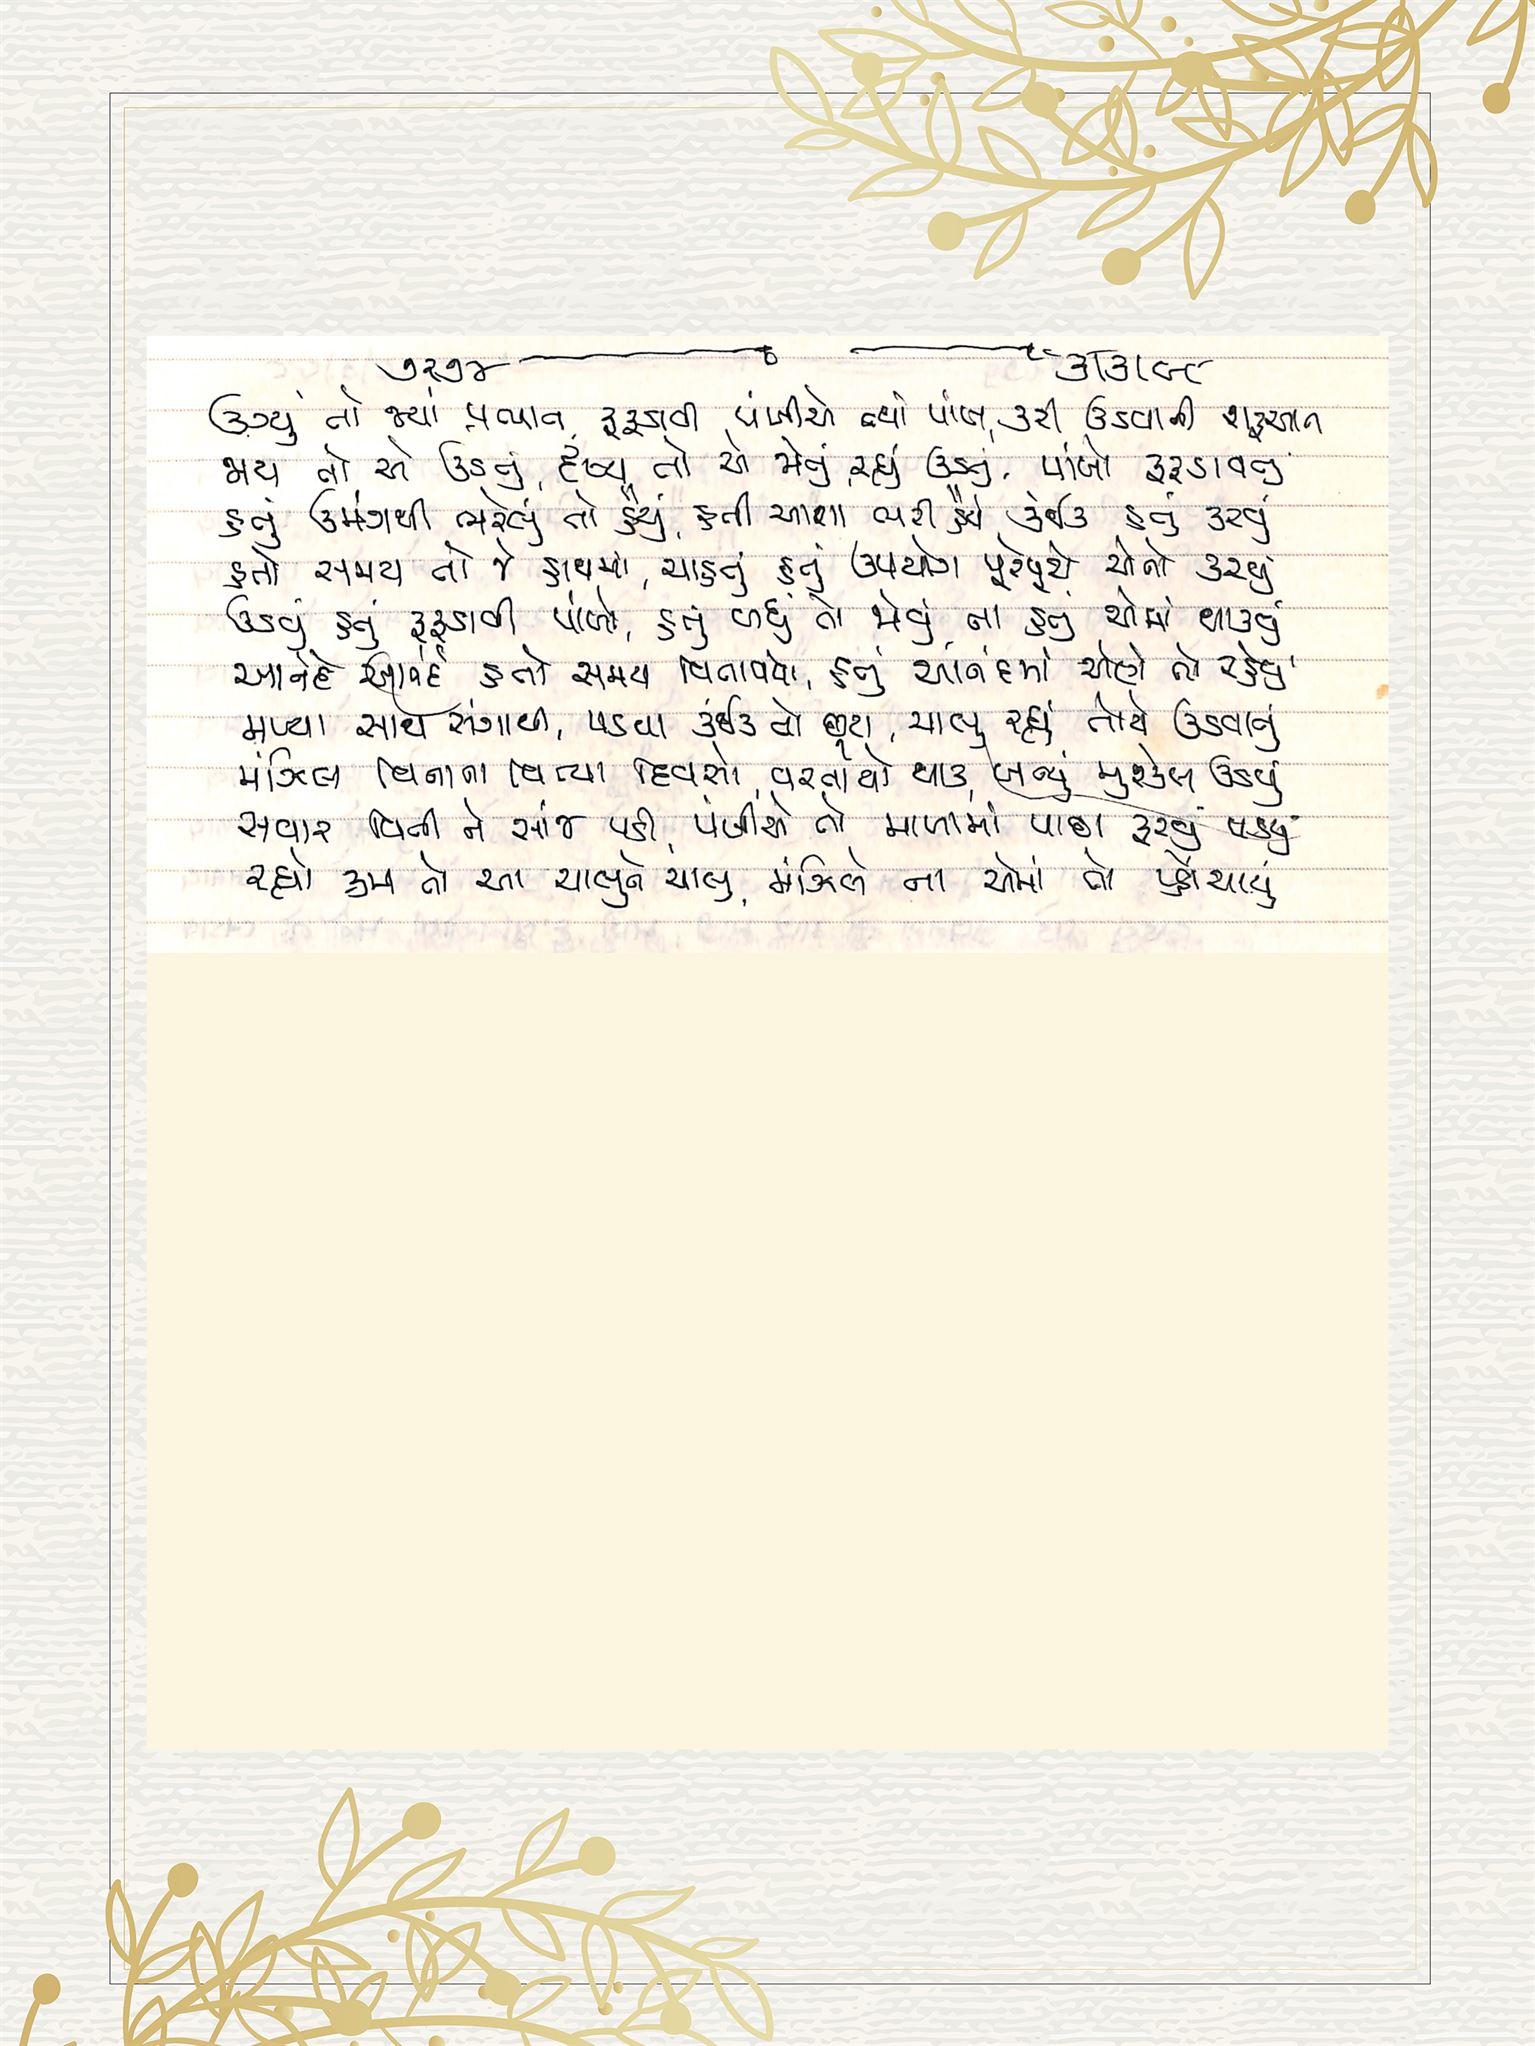 ઉગ્યું તો જ્યાં પ્રભાત, ફફડાવી પંખીએ ત્યાં પાંખ, કરી ઉડવાની શરૂઆત
જાય તો એ ઉડતું, દૃશ્ય તો એ જોતું રહ્યું ઉડતું, પાંખો ફફડાવતું
હતું ઉમંગથી ભરેલું તો હૈયું, હતી આશા ભરી હૈયે કંઈક હતું કરવું
હતો સમય તો જે હાથમાં, ચાહતું હતું ઉપયોગ પૂરેપૂરો એનો કરવું
ઉડવું હતું ફફડાવી પાંખો, હતું બધું તો જોવું, ના હતું એમાં થાકવું
આનંદે આનંદે હતો સમય વિતાવવો, હતું આનંદમાં એણે તો રહેવું
મળ્યા સાથે સંગાથી, પડયા કંઈક તો છૂટા, ચાલુ રહ્યું તોયે ઉડવાનું
મંઝિલ વિનાના વિત્યા દિવસો, વરતાયો થાક, બન્યું મુશ્કેલ ઉડવું
સવાર વિતી ને સાંજ પડી, પંખીએ તો માળામાં પાછા ફરવું પડયું
રહ્યો ક્રમ તો આ ચાલુને ચાલુ, મંઝિલે ના એમાં તો પહોંચાયું